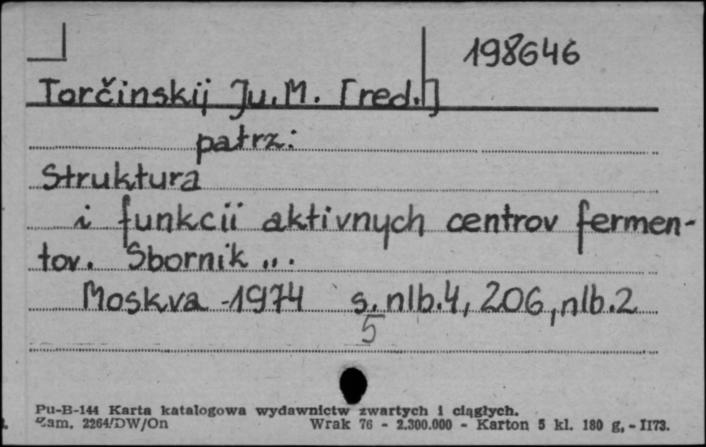 198646
Torčinskij Ju.M. [red.]
patrz:
Struktura
i funkcii aktivnych centrov fermen-
tov. Sbornik ...
Moskva 1974 s. nlb.4, 206, nlb.2
5
Pu-B-144 Karta katalogowa wydawnictw zwartych i ciągłych.
Zam. 2264/DW/On Wrak 76 - 2.300.000 - Karton 5 kl. 180 g, - II73.